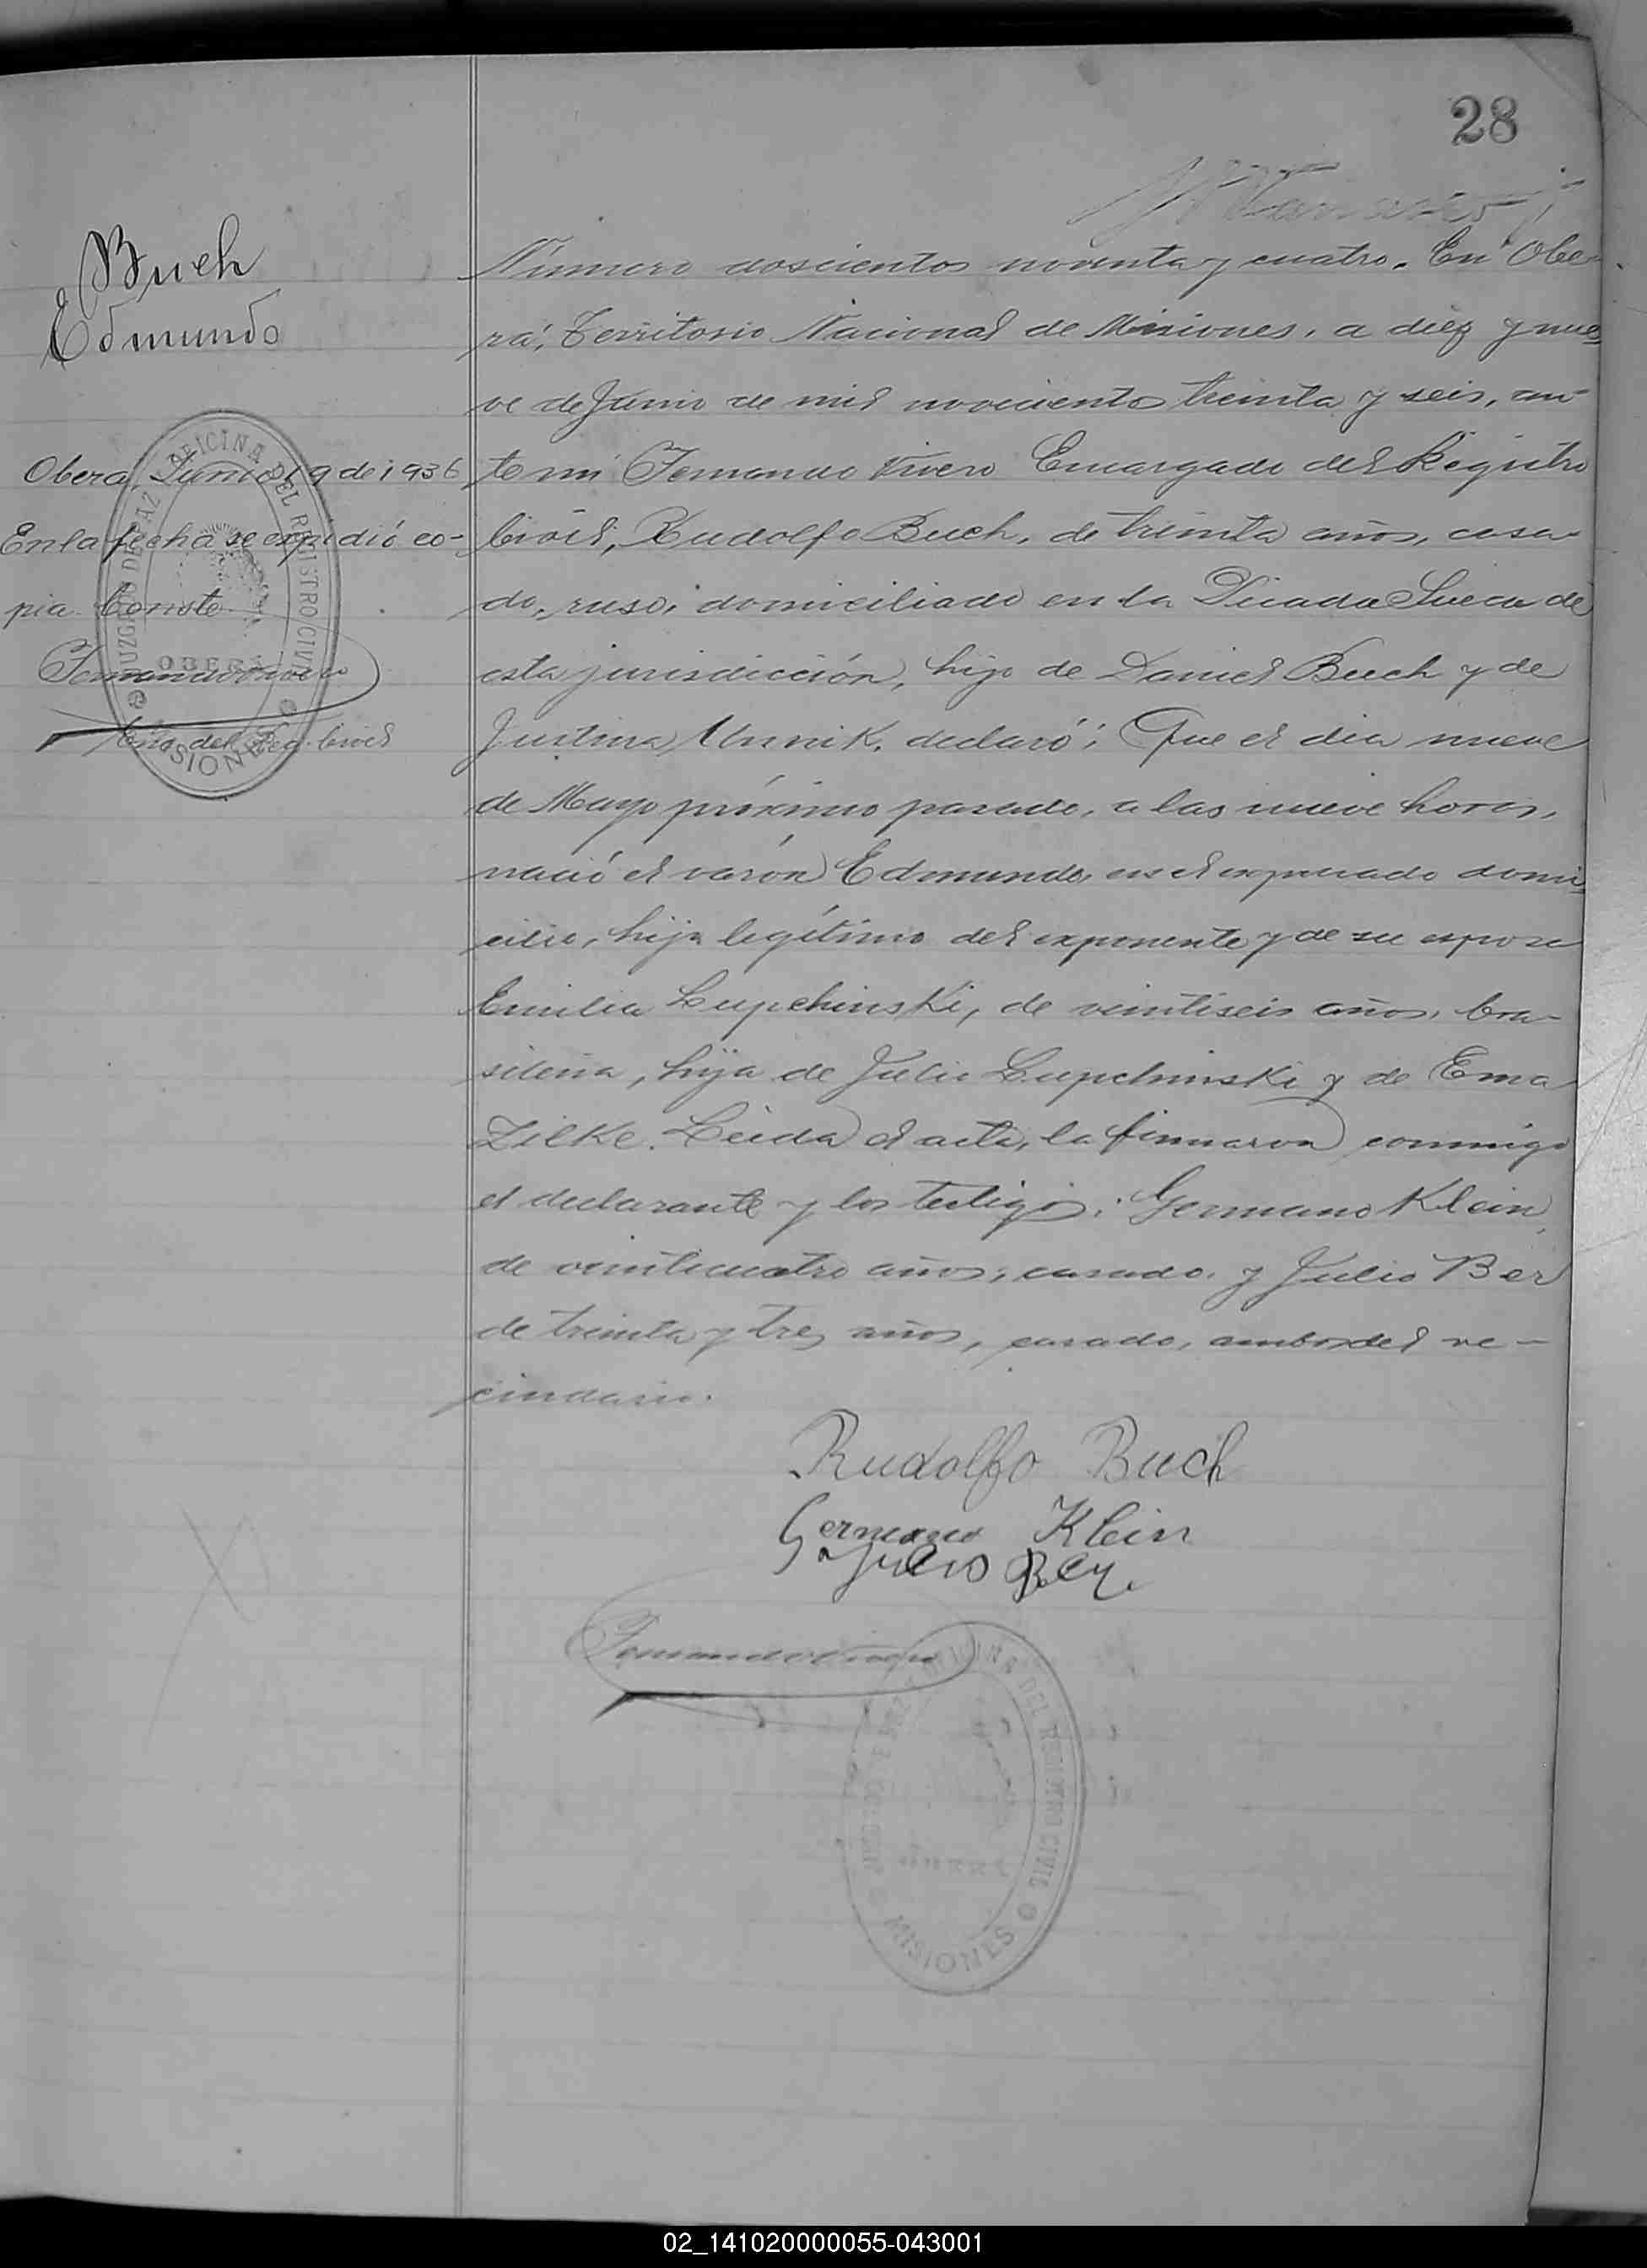 28
Buch
Edmundo
Obera, Junio 19 de 1936
En la fecha se expidió co-
pia. Conste.
Fernando Vivero
Enc. del Reg. Civil
JUZGADO DE PAZ Y OFICINA DEL REGISTRO CIVIL
OBERÁ
MISIONES
Número doscientos noventa y cuatro. En Obe-
rá, Territorio Nacional de Misiones, a diez y nue-
ve de Junio de mil novecientos treinta y seis, an-
te mi Fernando Vivero Encargado del Registro
Civil, Rudolfo Buch, de treinta años, casa-
do, ruso, domiciliado en la Picada Sueca de
esta jurisdicción, hijo de Daniel Buch y de
Justina Unnik, declaró: Que el dia nueve
de Mayo próximo pasado, a las nueve horas,
nació el varón Edmundo, en el expresado domi-
cilio, hijo legítimo del exponente y de su esposa
Emilia Lupchinski, de veintiseis años, bra-
sileña, hija de Julio Lupchinski y de Ema
Zilke. Leida el acta, la firmaron conmigo
el declarante y los testigos: Germano Klein,
de veinticuatro años, casado, y Julio Ber
de treinta y tres años, casado, ambos del ve-
cindario.
Rudolfo Buch
Germano Klein
Julio Bey.
Fernando Vivero
OFICINA DEL REGISTRO CIVIL
MISIONES
02_141020000055-043001